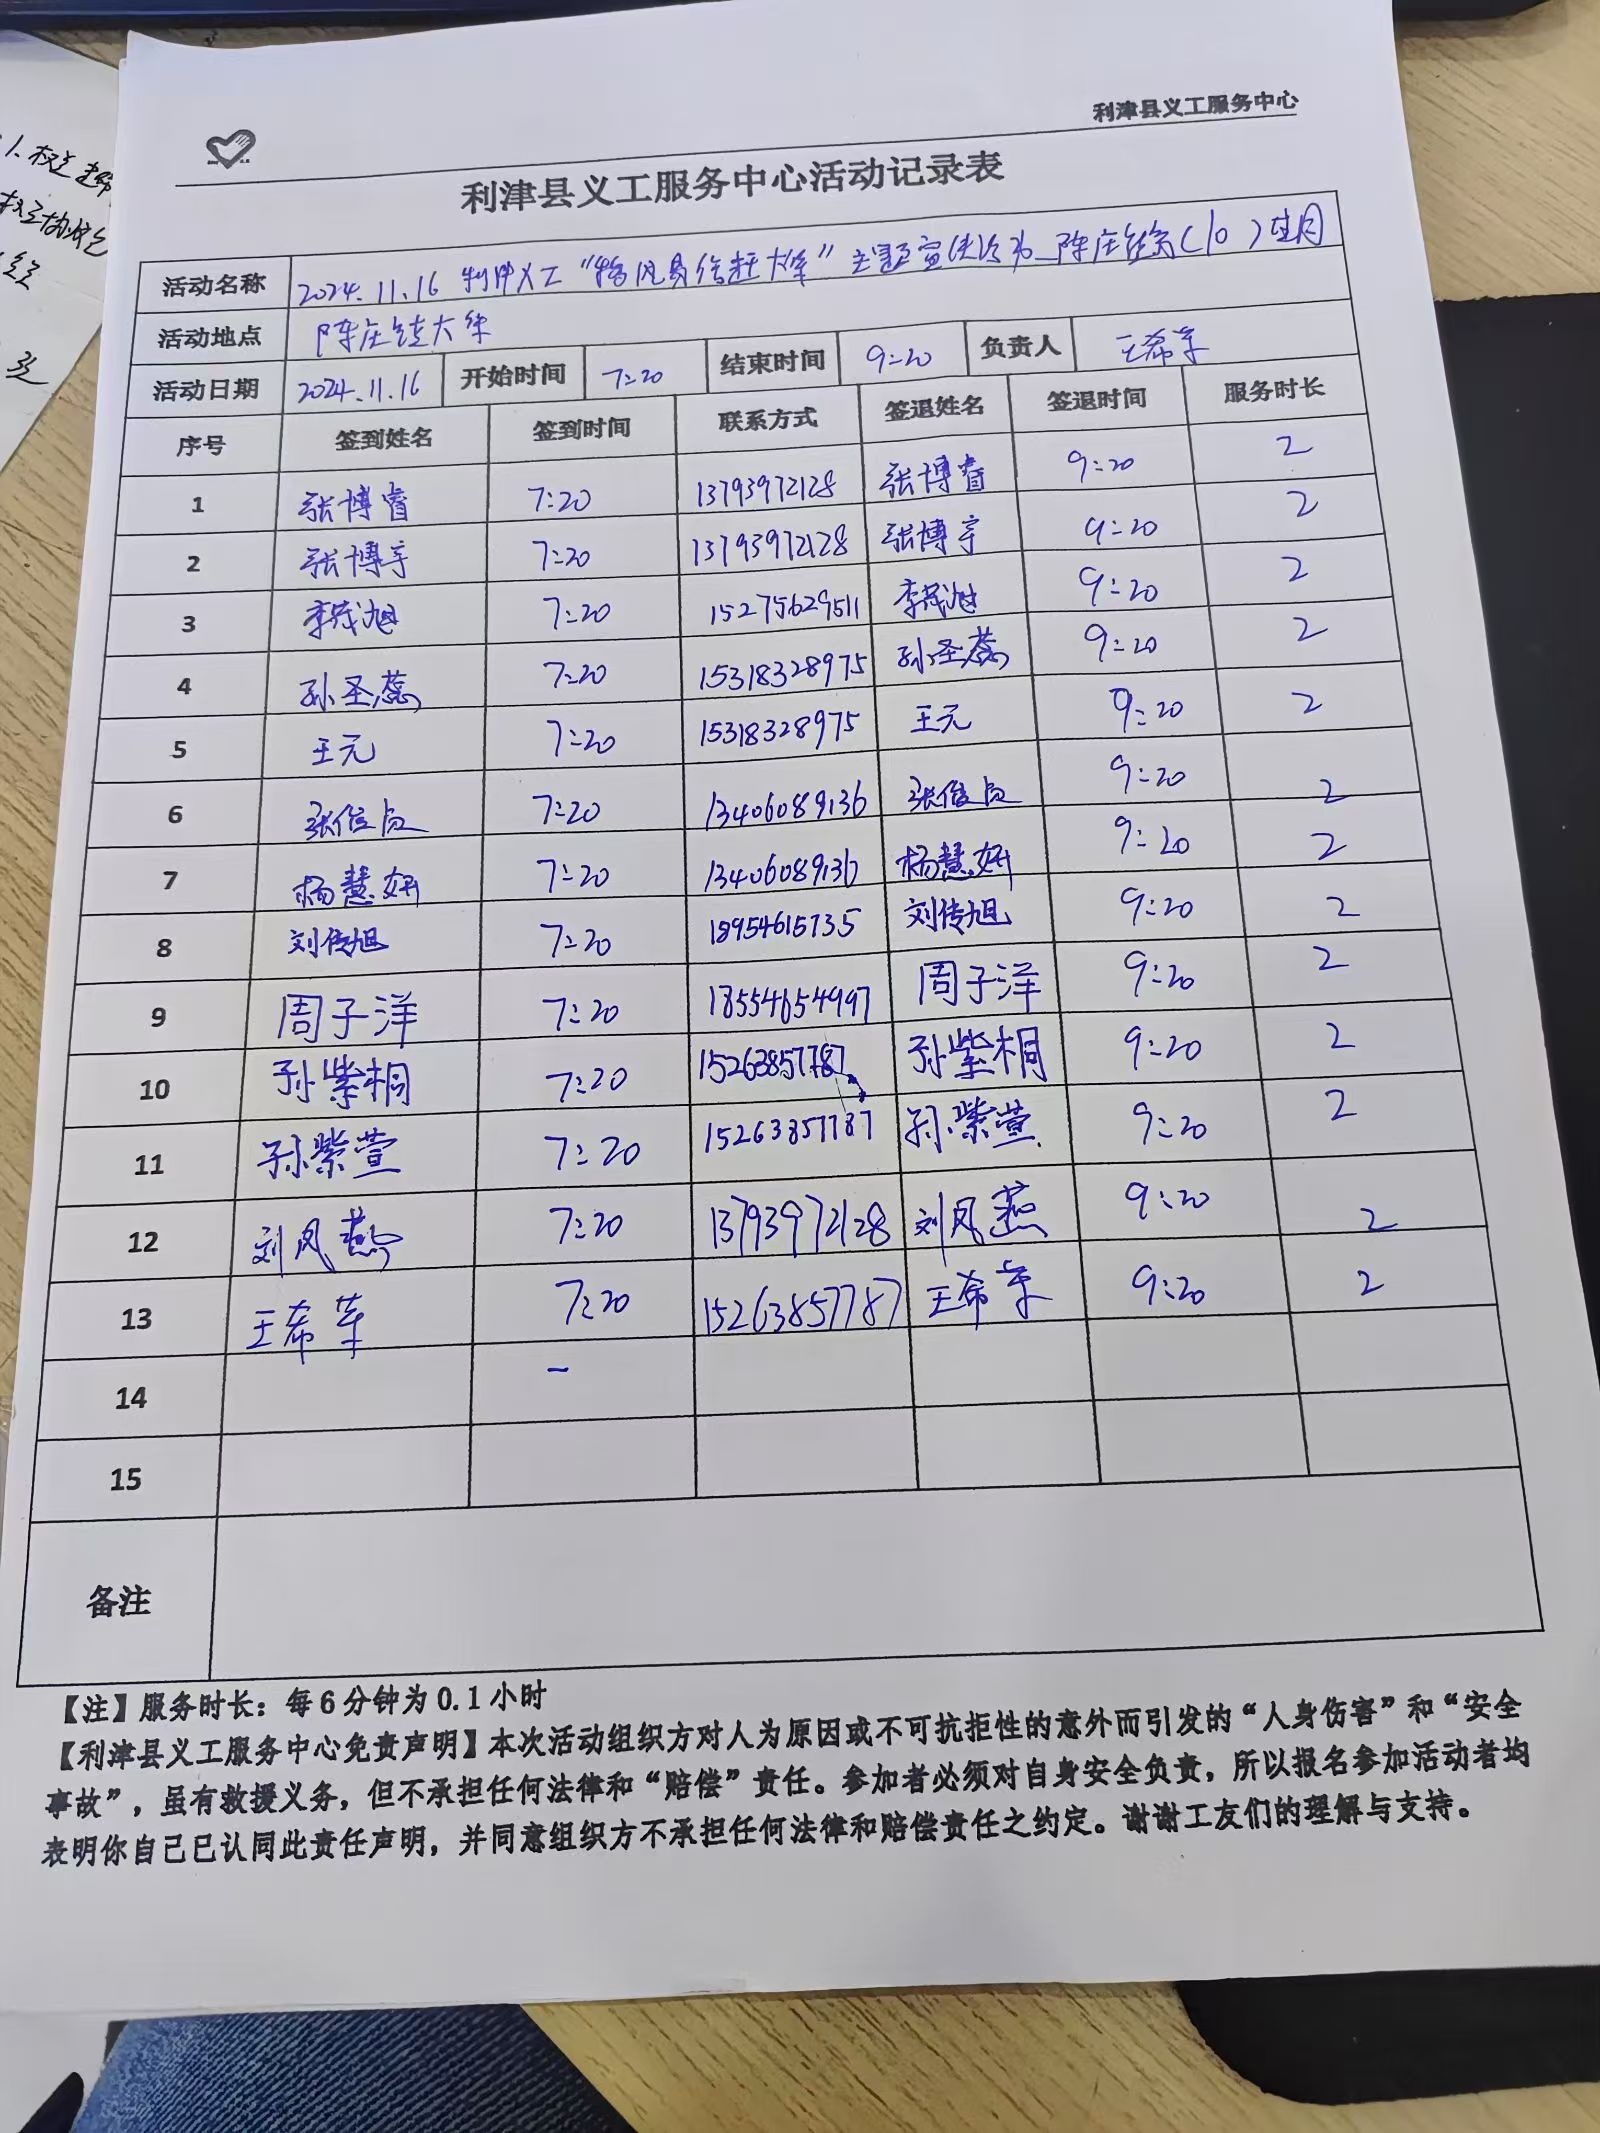 利津县义工服务中心
利津县义工服务中心活动记录表
活动名称 2024.11.16 利津义工“移风易俗赶大集”主题宣传活动_陈庄 (10)
活动地点 陈庄镇大集
活动日期 2024.11.16 开始时间 7:20 结束时间 9:20 负责人 王希军
序号 签到姓名 签到时间 联系方式 签退姓名 签退时间 服务时长
1 张博睿 7:20 13793972128 张博睿 9:20 2
2 张博宇 7:20 13793972128 张博宇 9:20 2
3 李茂旭 7:20 15275629511 李茂旭 9:20 2
4 孙圣蕊 7:20 15318328975 孙圣蕊 9:20 2
5 王元 7:20 15318328975 王元 9:20 2
6 张俊 7:20 13406089136 张俊 9:20 2
7 杨慧妍 7:20 13406089136 杨慧妍 9:20 2
8 刘传旭 7:20 18954615735 刘传旭 9:20 2
9 周子洋 7:20 18554654997 周子洋 9:20 2
10 孙紫桐 7:20 15263857787 孙紫桐 9:20 2
11 孙紫萱 7:20 15263857787 孙紫萱 9:20 2
12 刘凤燕 7:20 13793972128 刘凤燕 9:20 2
13 王希军 7:20 15263857787 王希军 9:20 2
14
15
备注
【注】服务时长：每6分钟为0.1小时
【利津县义工服务中心免责声明】本次活动组织方对人为原因或不可抗拒性的意外而引发的“人身伤害”和“安全
事故”，虽有救援义务，但不承担任何法律和“赔偿”责任。参加者必须对自身安全负责，所以报名参加活动者均
表明你自己已认同此责任声明，并同意组织方不承担任何法律和赔偿责任之约定。谢谢工友们的理解与支持。